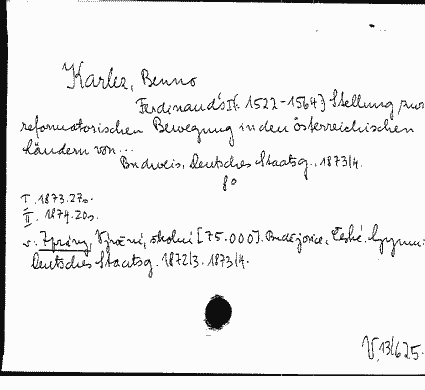 Karlez, Benno
Ferdinand's I. (1522-1564) Stellung zur
reformatorischen Bewegung in den österreichischen
Ländern von...
Budweis, Deutsches Staatsg., 1873/4.
8°
I. 1873. 27s.
II. 1874. 20s.
v. Zprávy, Výroční, školní [75.000]. Budějovice, České. Gymn.
Deutsches Staatsg. 1872/3. 1873/4.
V, 13/625.